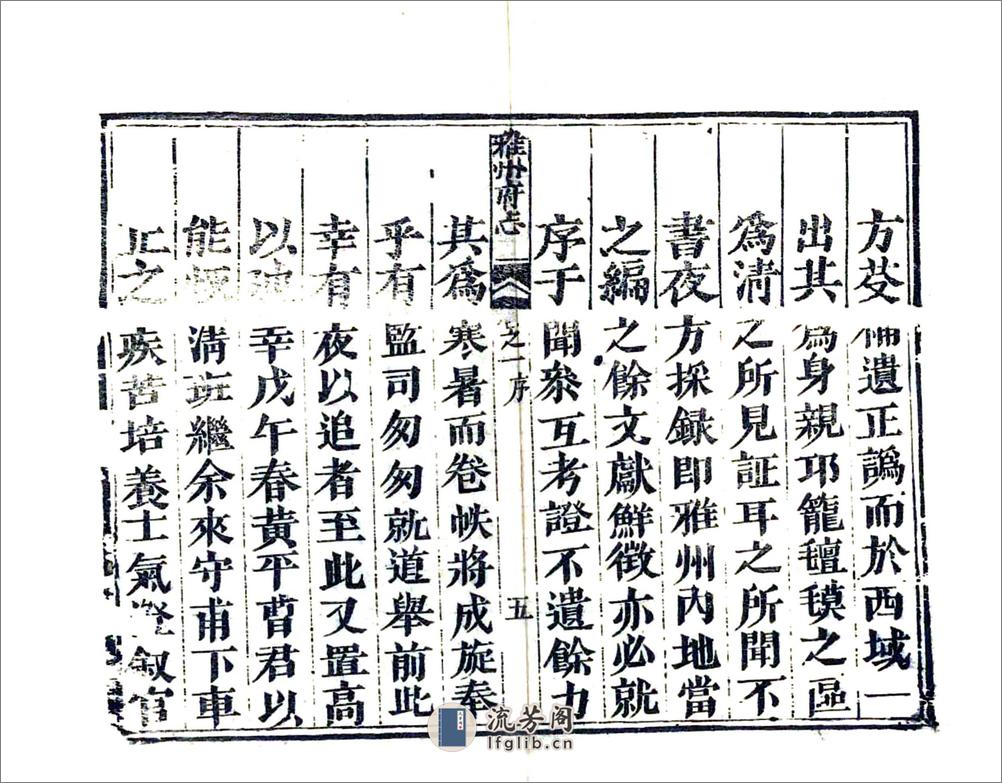 方芟遺正譌而於西域一
出其爲身親邛籠氊之區
爲清之所見証耳之所聞不
書夜方採録即雅州内地當
之編之餘文獻鮮徵亦必就
序于聞叅互考證不遺餘力
雅州府志 之一序 五
其爲寒暑而卷帙將成旋奉
乎有監司匆匆就道舉前此
幸有夜以追者至此又置高
以幸戊午春黃平曹君以
能清班繼余來守甫下車
正之疾苦培養士氣叙官
流芳阁
lfglib.cn